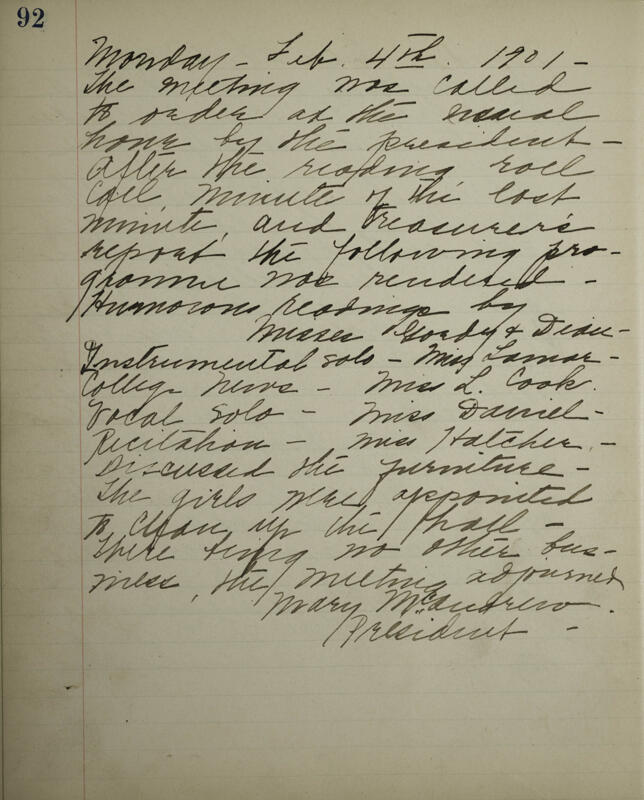 92
Monday - Feb. 4th. 1901 -
The meeting was called
to order at the usual
hour by the president -
After the reading roll
call, minute of the last
minute, and treasurer's
report, the following pro-
gramme was rendered -
Humorous readings by
Misses Gordy & Dean -
Instrumental solo - Miss Lamar -
College News - Miss L. Cook.
Vocal Solo - Miss Daniel -
Recitation - Miss Hatcher. -
Discussed the furniture -
The girls were appointed
to clean up the hall -
There being no other bus-
iness, the meeting adjourned
Mary McAndrew.
President -